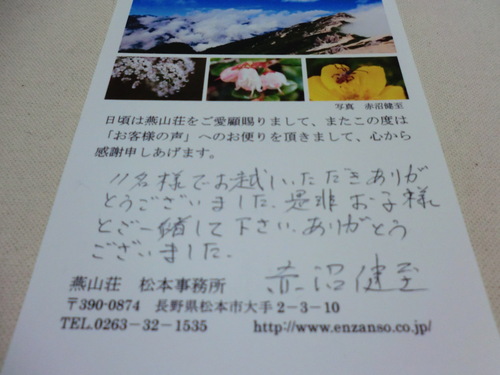 写真 赤沼健至
日頃は燕山荘をご愛顧賜りまして、またこの度は
「お客様の声」へのお便りを頂きまして、心から
感謝申しあげます。
11名様でお越しいただきありが
とうございました。是非お子様
とご一緒して下さい。ありがとう
ございました。
燕山荘 松本事務所 赤沼健至
〒390-0874 長野県松本市大手2-3-10
TEL.0263-32-1535 http://www.enzanso.co.jp/